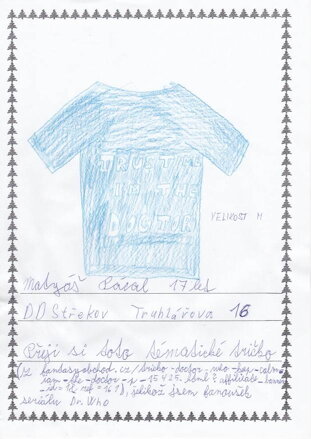 TRUST ME
I'M THE
DOCTOR
VELIKOST M
Matyáš 17 let
D.D Střekov Truhlářova 16
Přeji si toto tématické tričko
fantasyobchod.cz/tricko-doctor-who-keep-calm-
jelikož jsem fanoušek
seriálu Dr. Who